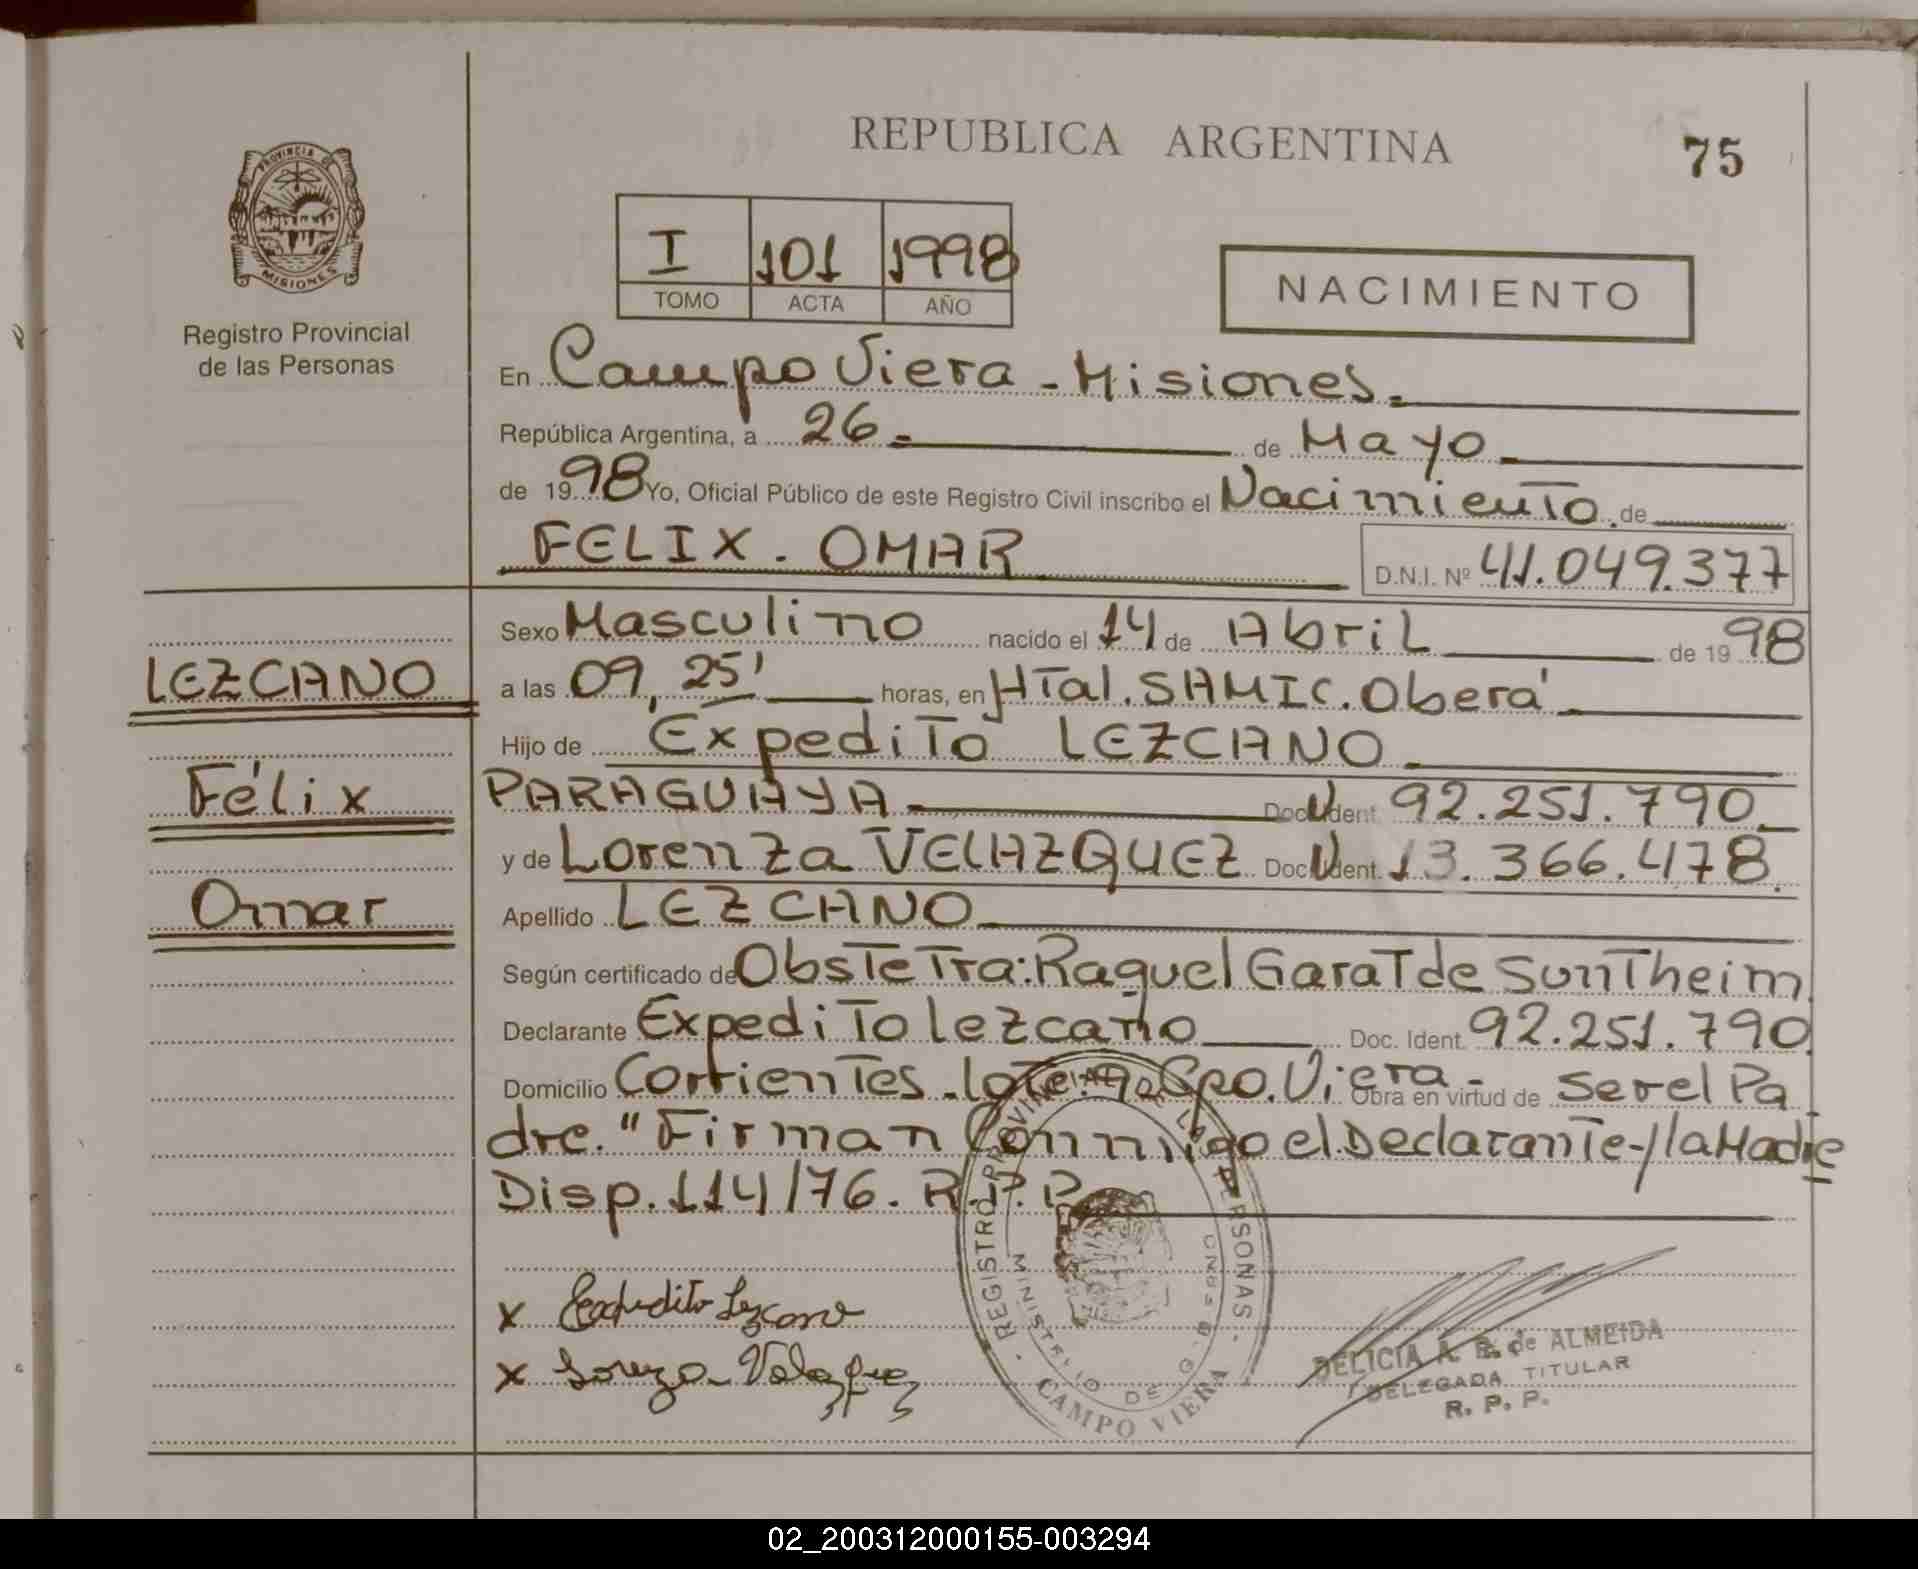 REPUBLICA ARGENTINA
75
PROVINCIA DE
MISIONES
Registro Provincial
de las Personas
I 101 1998
TOMO ACTA AÑO
NACIMIENTO
En Campo Viera - Misiones.
República Argentina, a 26 de Mayo
de 1998 Yo, Oficial Público de este Registro Civil inscribo el Nacimiento de
FELIX. OMAR
D.N.I. Nº 41.049.377
LEZCANO
Félix
Omar
Sexo Masculino nacido el 14 de Abril de 1998
a las 09, 25' horas, en HTal. SAMIC. Oberá
Hijo de Expedito LEZCANO
PARAGUAYA Doc. U Ident. 92.251.790
y de Lorenza VELAZQUEZ Doc. U Ident. 13.366.478
Apellido LEZCANO
Según certificado de Obstetra: Raquel Garat de Sunntheim
Declarante Expedito lezcano Doc. Ident. 92.251.790
Domicilio Corrientes - lote: 9. Cpo. Viera - Obra en virtud de Ser el Pa
dre. "Firman Conmigo el Declarante - / la Madre
Disp. 114/76. R.P.P.
x Expedito Lezcano
x Lorenza Velazquez
REGISTRO PROVINCIAL DE LAS PERSONAS
MINISTERIO DE G
CAMPO VIERA
DELICIA A. R. de ALMEIDA
DELEGADA TITULAR
R. P. P.
02_200312000155-003294